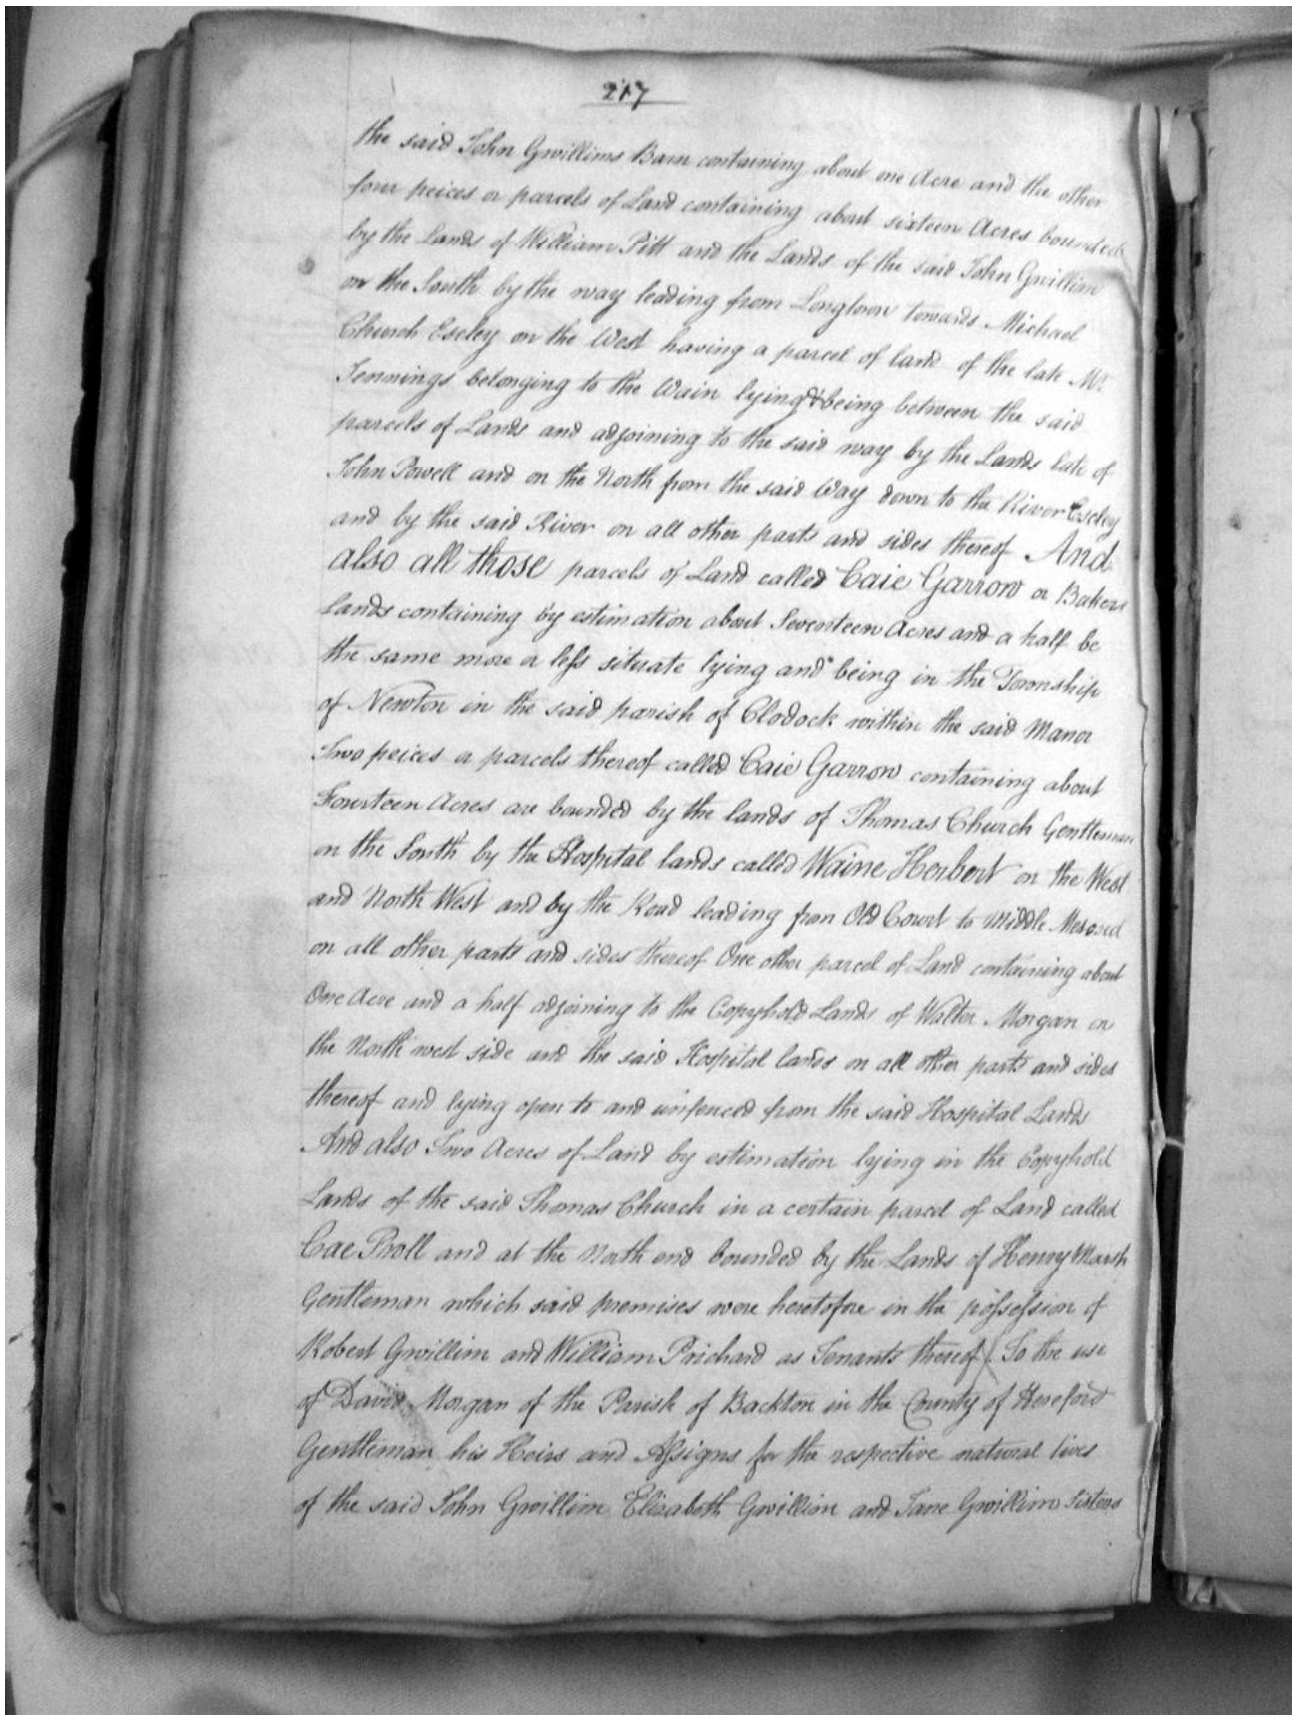 217
the said John Gwillims Barn containing about one Acre and the other
four peices or parcels of Land containing about sixteen Acres bounded
by the Lands of William Pitt and the Lands of the said John Gwillim
on the South by the way leading from Longtown towards Michael
Church Escley on the West having a parcel of land of the late Mr.
Jennings belonging to the Wain lying & being between the said
parcels of Lands and adjoining to the said way by the Lands late of
John Powell and on the North from the said Way down to the River Escley
and by the said River on all other parts and sides thereof And
also all those parcels of Land called Caie Garrow or Bakers
Lands containing by estimation about Seventeen Acres and a half be
the same more or less situate lying and being in the Township
of Newton in the said parish of Clodock within the said Manor
Two peices or parcels thereof called Caie Garrow containing about
Fourteen Acres are bounded by the lands of Thomas Church Gentleman
on the South by the Hospital lands called Waine Herbert on the West
and North West and by the Road leading from Old Court to Middle Mescoed
on all other parts and sides thereof One other parcel of Land containing about
One Acre and a half adjoining to the Copyhold Lands of Walter Morgan on
the North west side and the said Hospital lands on all other parts and sides
thereof and lying open to and unfenced from the said Hospital Lands
And also Two Acres of Land by estimation lying in the Copyhold
Lands of the said Thomas Church in a certain parcel of Land called
Cae Proll and at the North end bounded by the Lands of Henry Marsh
Gentleman which said premises were heretofore in the possession of
Robert Gwillim and William Prichard as Tenants thereof To the use
of David Morgan of the Parish of Backton in the County of Hereford
Gentleman his Heirs and Assigns for the respective natural lives
of the said John Gwillim Elizabeth Gwillim and Jane Gwillim Sisters